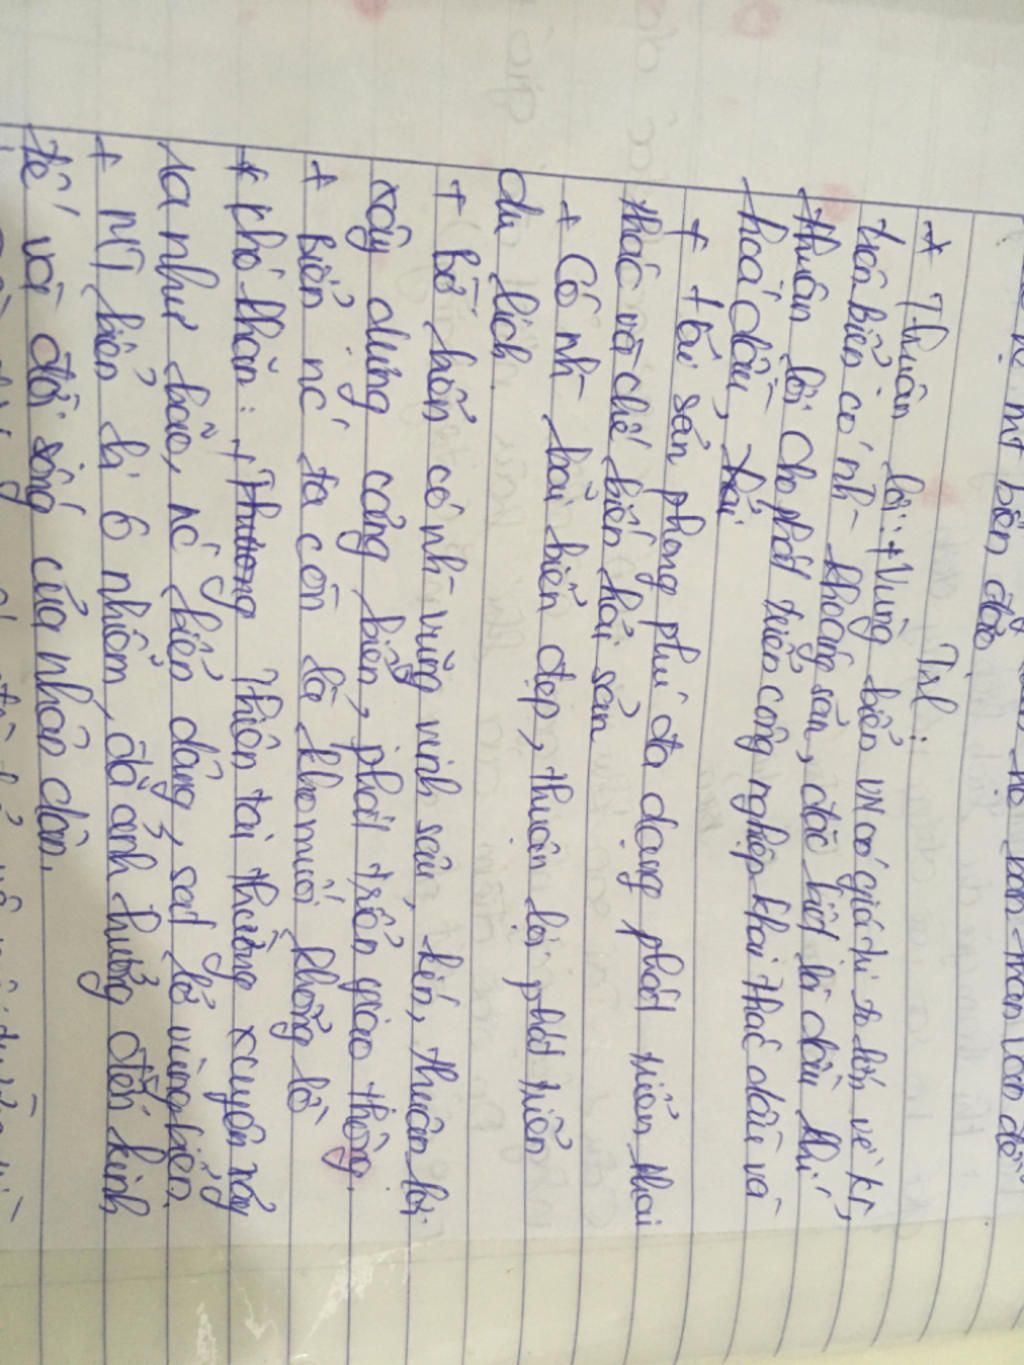 mt biển đảo
Trl:
* Thuận lợi: + Vùng biển VN có giá trị to lớn về kt,
trên biển có nh- khoáng sản, đặc biệt là dầu khí
thuận lợi cho phát triển công nghiệp khai thác dầu và
hoá dầu,
+ Hải sản phong phú đa dạng phát triển khai
thác và chế biến hải sản
+ Có nh- bãi biển đẹp, thuận lợi phát triển
du lịch.
+ Bờ biển có nh- vũng vịnh sâu, kín, thuận lợi
xây dựng cảng biển, phát triển giao thông.
+ Biển nc ta còn là kho muối khổng lồ
* Khó khăn: + Thương thiên tai thường xuyên xảy
ra như bão, nc biển dâng, sạt lở vùng biển.
+ MT biển bị ô nhiễm, đã ảnh hưởng đến kinh
tế, và đời sống của nhân dân.